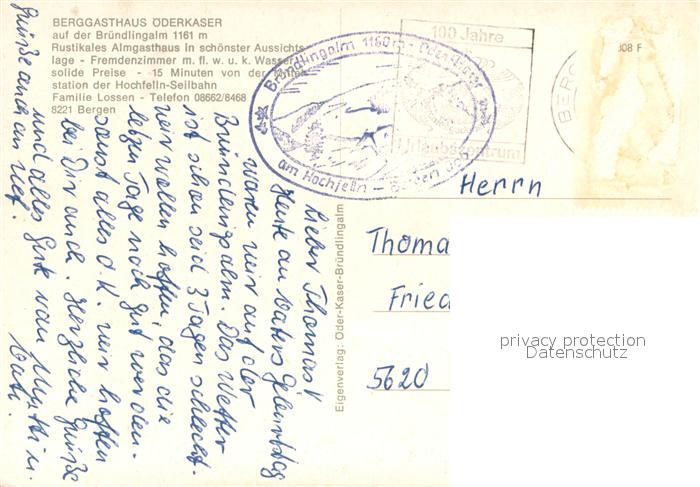 BERGGASTHAUS ODERKASER
auf der Bründlingalm 1161 m
Rustikales Almgasthaus in schönster Aussichts-
lage - Fremdenzimmer m. fl. w. u. k. Wasser
solide Preise - 15 Minuten von der
station der Hochfelln-Seilbahn
Familie Lossen - Telefon 08662/8468
8221 Bergen
Bründlingalm 1160 m - Oder-Kaser
am Hochfelln - Bergen Obb
100 Jahre
Urlaubszentrum
BERG
308 F
Eigenverlag: Oder-Kaser-Bründlingalm
Lieber Thomas!
Heute an Vatis Geburtstag
waren wir auf der
Bründlingalm. Das Wetter
ist schon seid 3 Tagen schlecht.
wir wollen hoffen, das die
letzen Tage noch gut werden.
sonst alles o.k. wir hoffen
bei Dir auch. Herzliche Grüße
und alles Gute von Mutti u.
Vati.
Grüße auch an
Herrn
Thoma
Fried
5620
privacy protection
Datenschutz